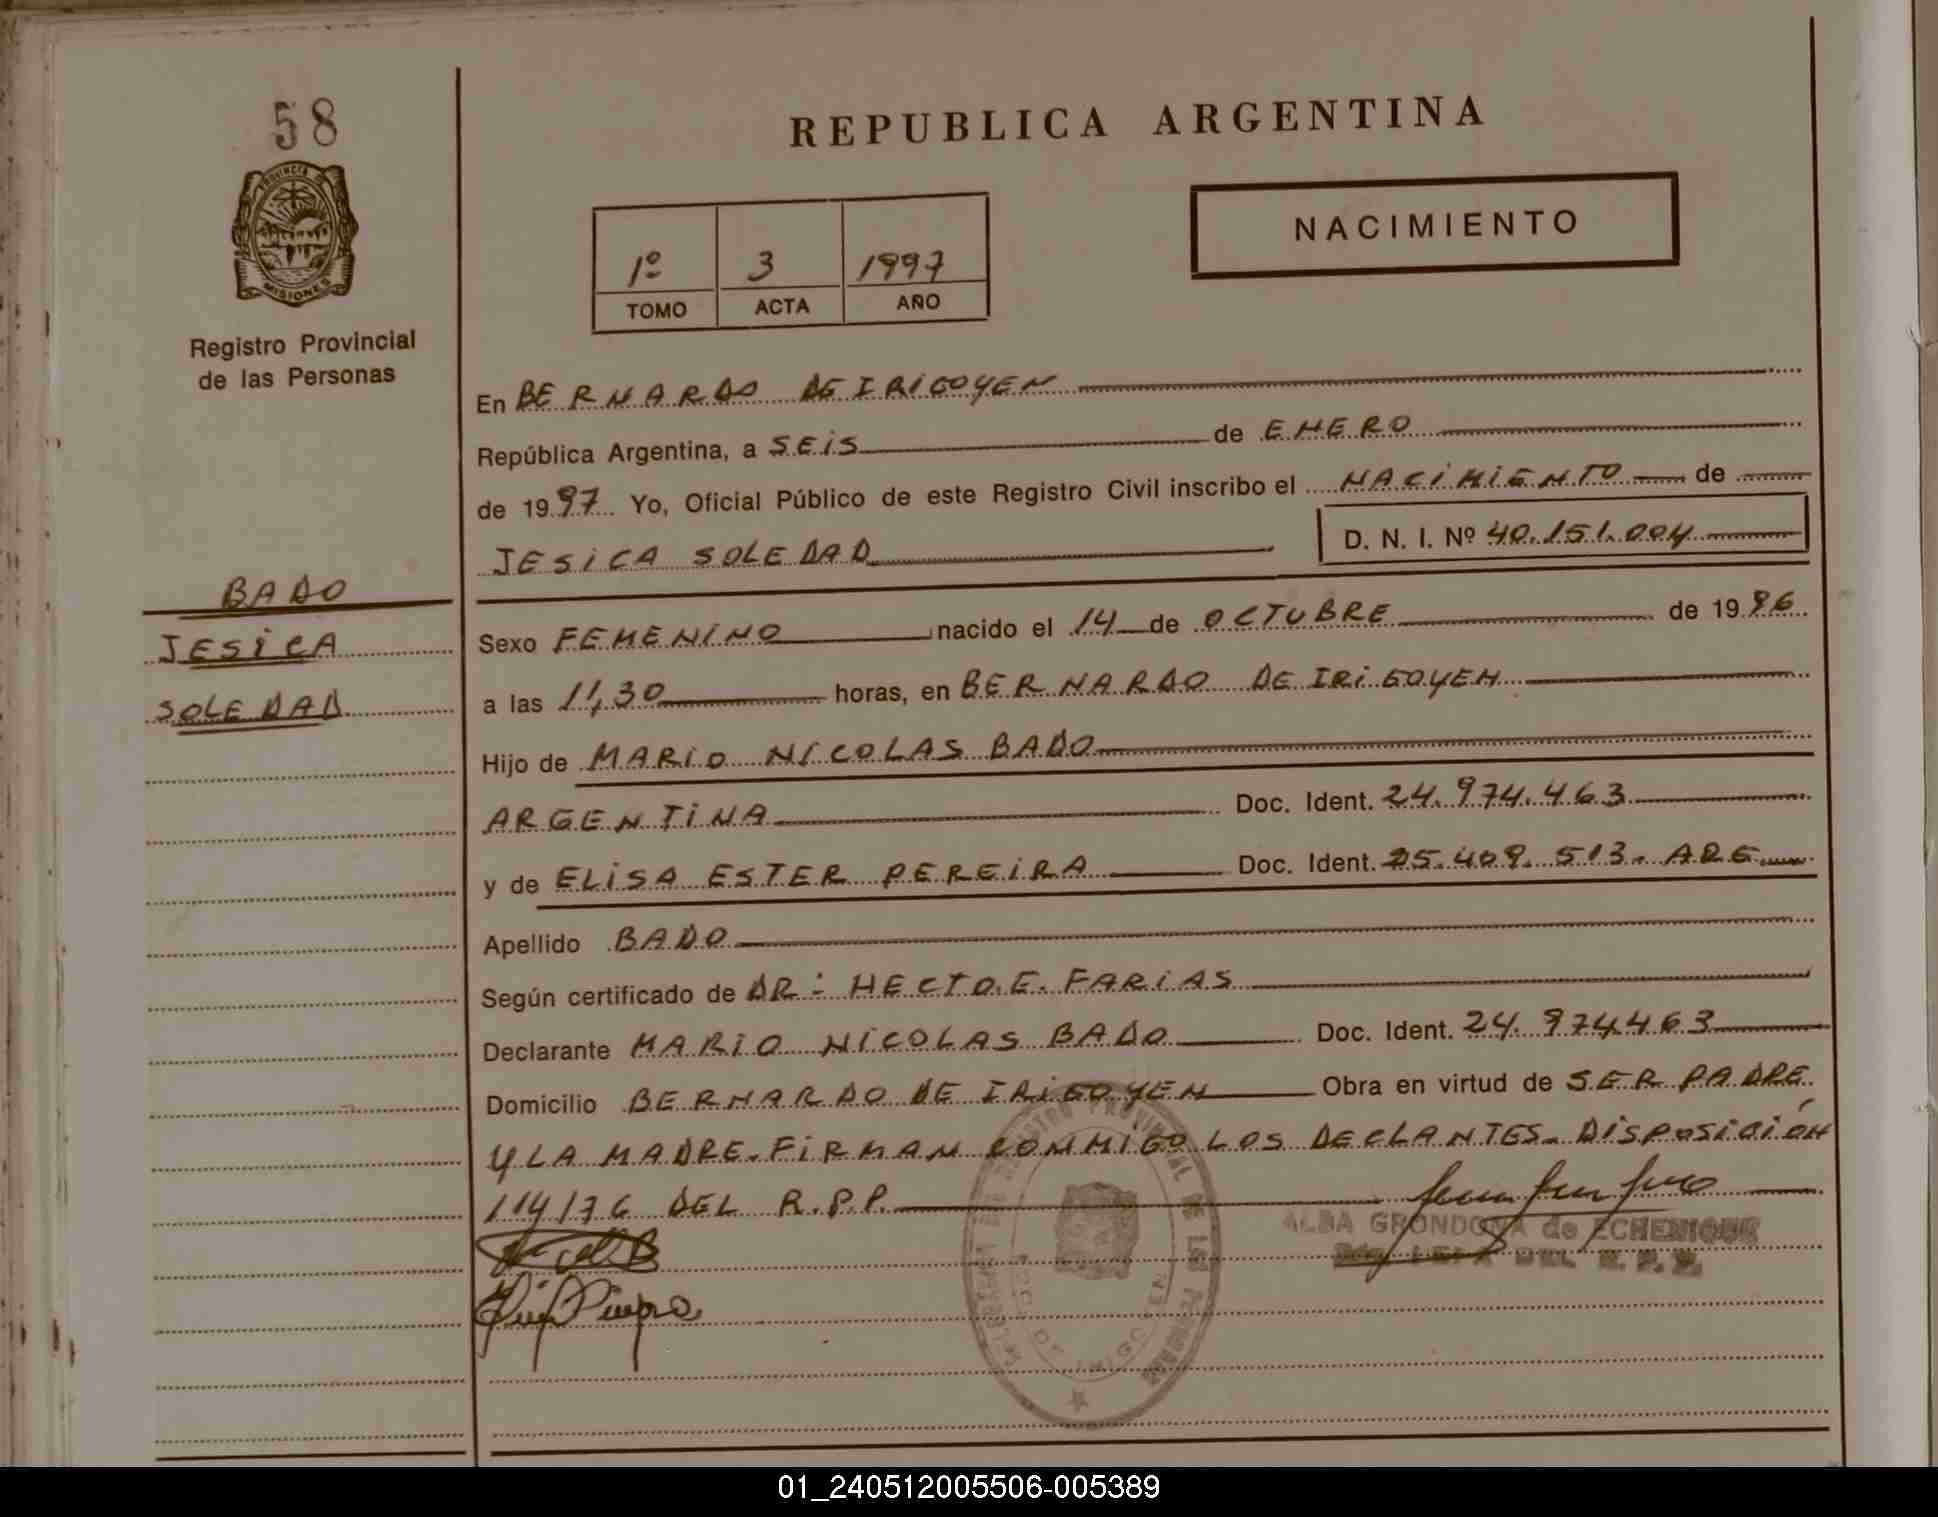 58
REPUBLICA ARGENTINA
PROVINCIA DE
MISIONES
Registro Provincial
de las Personas
NACIMIENTO
1º 3 1997
TOMO ACTA AÑO
En BERNARDO DE IRIGOYEN
República Argentina, a SEIS de ENERO
de 1997 Yo, Oficial Público de este Registro Civil inscribo el NACIMIENTO de
JESICA SOLEDAD D. N. I. Nº 40.151.004
BADO
JESICA
SOLEDAD
Sexo FEMENINO nacido el 14 de OCTUBRE de 1996
a las 11,30 horas, en BERNARDO DE IRIGOYEN
Hijo de MARIO NICOLAS BADO
ARGENTINA Doc. Ident. 24.974.463
y de ELISA ESTER PEREIRA Doc. Ident. 25.409.513. ARG
Apellido BADO
Según certificado de DR: HECTO.E. FARIAS
Declarante MARIO NICOLAS BADO Doc. Ident. 24.974463
Domicilio BERNARDO DE IRIGOYEN Obra en virtud de SER PADRE
Y LA MADRE. FIRMAN CONMIGO LOS DECLANTES. DISPOSICIÓN
114/76 DEL R.P.P.
ALBA GRONDONA de ECHENIQUE
DEL R. P. P.
01_240512005506-005389